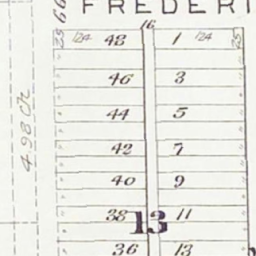 66 FREDERI
16
25 124 48 1 124 25
46 3
44 5
42 7
4.98 Ch
40 9
38 13 11
36 13